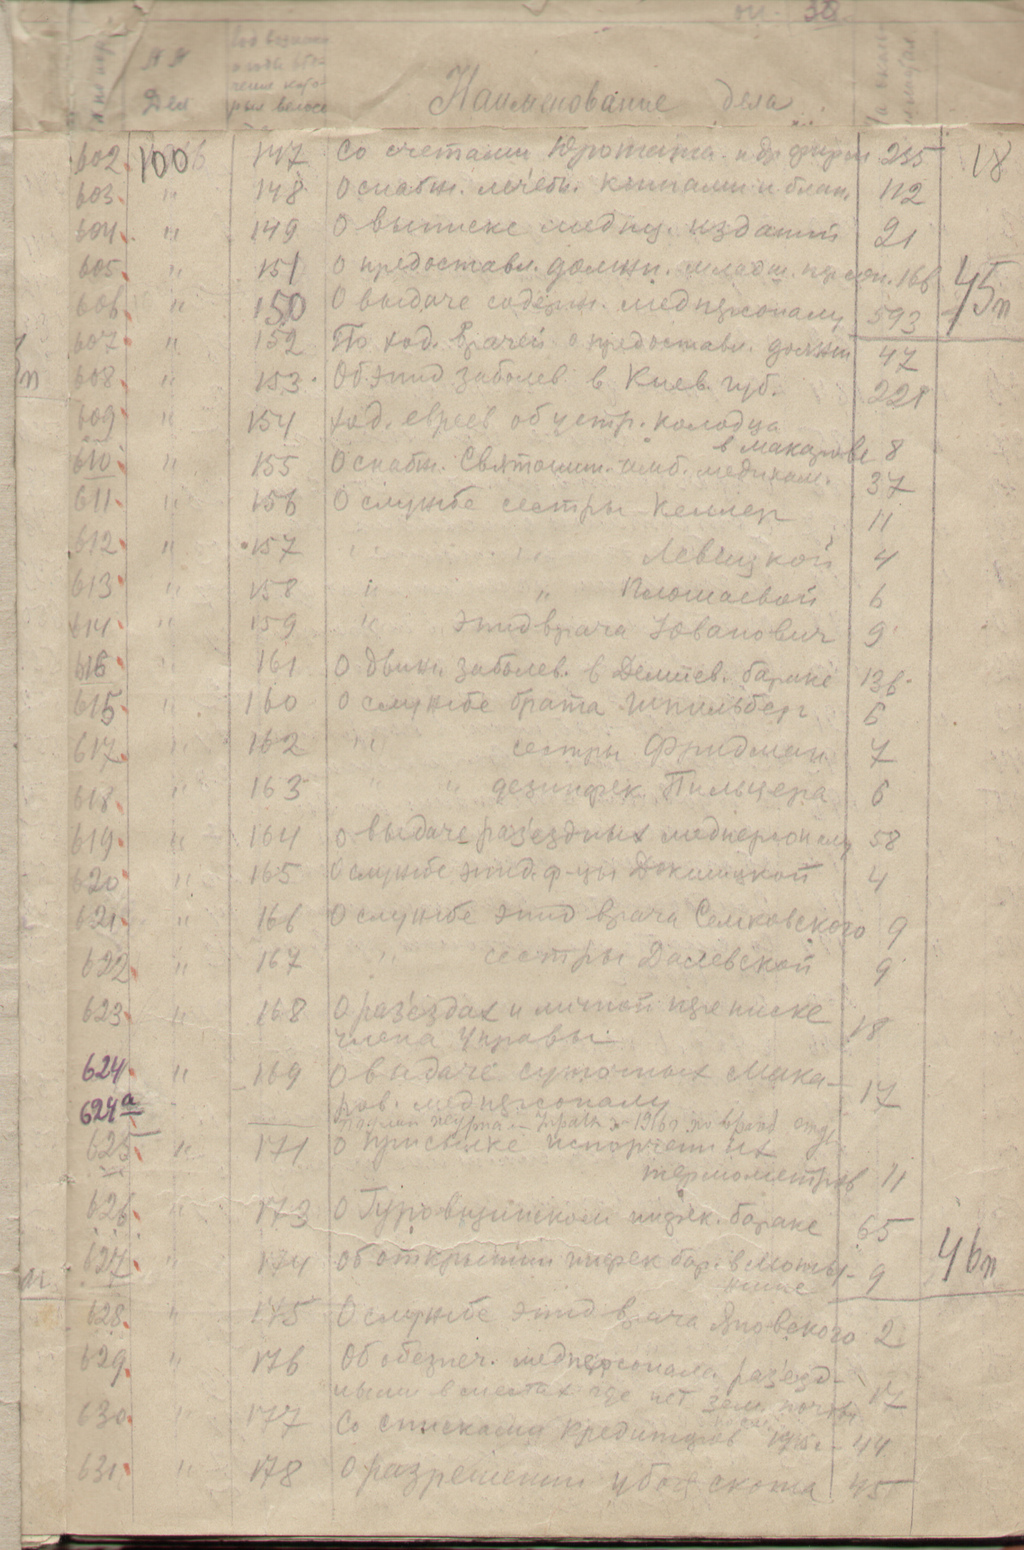 оп. 38
№ №
Дел
Наименование дела
602. 100 147 Со счетами Юротата и др фирм 235 18
603. " 148 О снабж. лечебн. книгами и блан. 112
604. " 149 О выписке медиц. изданий 21
605. " 151 О предоставл. должн. младш. персон. 166 45п
606. " 150 О выдаче содерж. медперсоналу 593
607. " 152 По ход. врачей о предоставл. должн 47
608. " 153. Об эпид заболев в Киев. губ. 221
609 " 154 ход. евреев об устр. колодца
в Макарове 8
610. " 155 О снабж. Святошин. амб. медикам. 37
611. " 156 О службе сестры Келлер 11
612. " 157 " " Левицкой 4
613. " 158 " " 6
614. " 159 " эпид врача Иованович 9
616 " 161 О движ. заболев. в бараке 136
615. " 160 О службе брата Шпильберг 6
617. " 162 " сестры Фридман 7
618. " 163 " " дезинфек. Пильцера 6
619. " 164 О выдаче раз'ездных медперсоналу 58
620 " 165 О службе эпид. ф-цы Докшицкой 4
621. " 166 О службе эпид врача Семковского 9
622. " 167 " сестры Далевской 9
623. " 168 О раз'ездах и личной переписке
члена Управы 18
624. " 169 О выдаче суточных Мака-
ров. медперсоналу 17
624а 1916 г. по врач. отд.
625 " 171 О присылке испорченных
термометров 11
626. " 173 О Гуровщинском инфек. бараке 65
627. " 174 Об открытии инфек бар. в Моты-
жине 9 46п
628. " 175 О службе эпид врача Яновского 2
629. " 176 Об обезпеч. медперсонала раз'езд-
ными в местах где нет зем. почты 17
630. " 177 Со списками кредиторов 1915 г. 44
631. " 178 О разрешении убоя скота 45